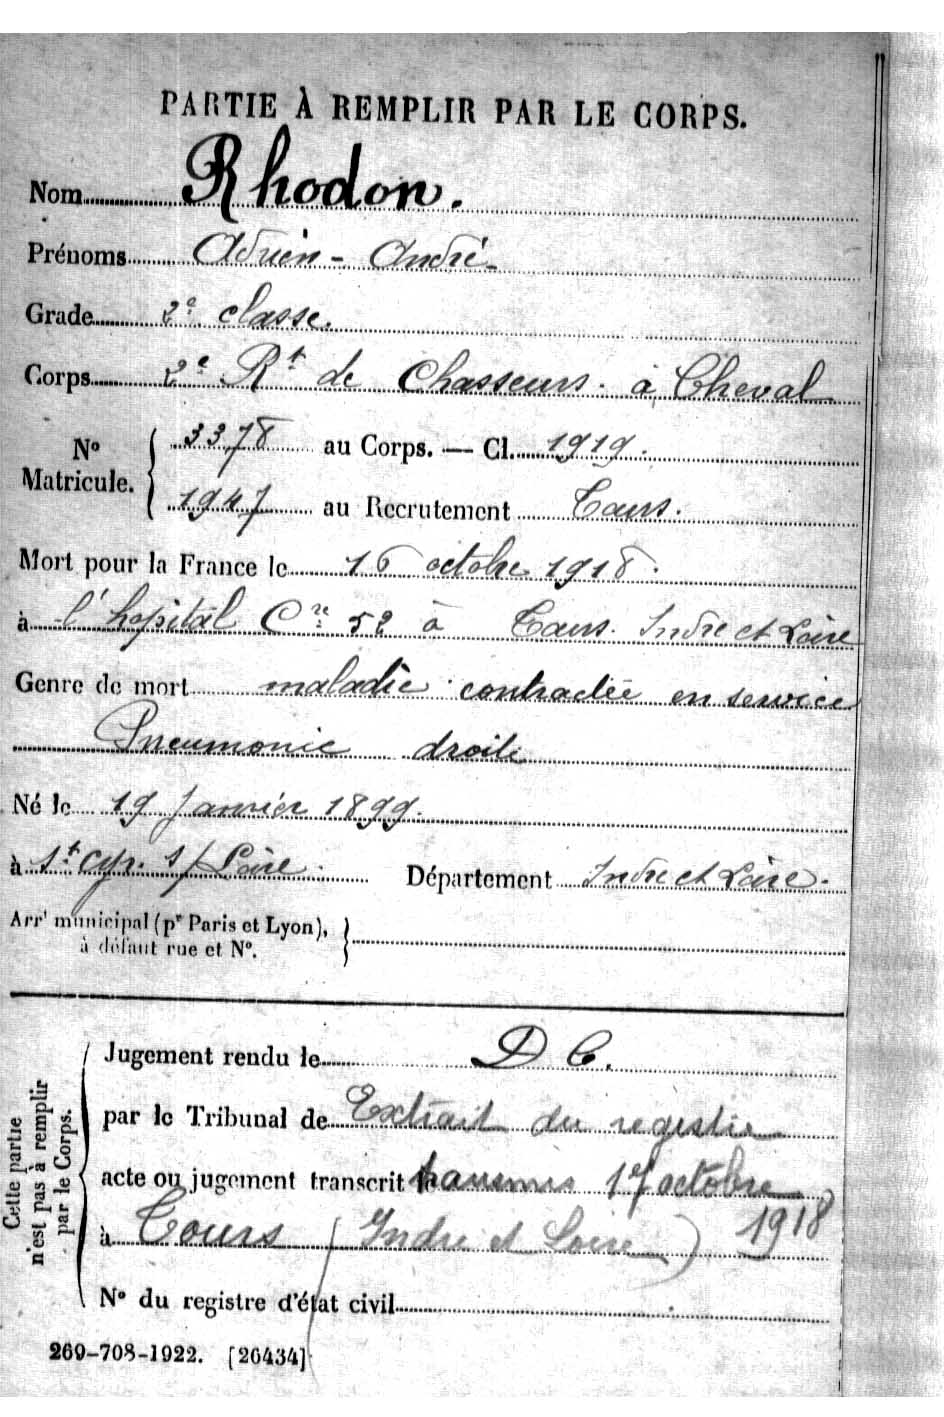 PARTIE À REMPLIR PAR LE CORPS.
Nom Rhodon.
Prénoms Adrien - André -
Grade 2e classe.
Corps 2e Rt de Chasseurs. à Cheval
No Matricule. { 3378 au Corps. — Cl. 1919.
1947 au Recrutement Tours.
Mort pour la France le 16 octobre 1918.
à l'hopital Cre 52 à Tours. Indre et Loire
Genre de mort maladie contractée en service
Pneumonie droite
Né le 19 Janvier 1899.
à St Cyr. s/ Loire. Département Indre et Loire.
Arrt municipal (pr Paris et Lyon), à défaut rue et No. }
Cette partie n'est pas à remplir par le Corps.
Jugement rendu le D C.
par le Tribunal de Extrait du registre
acte ou jugement transcrit le transmis 17 octobre
à Tours (Indre et Loire) 1918
No du registre d'état civil
269-708-1922. [26434]